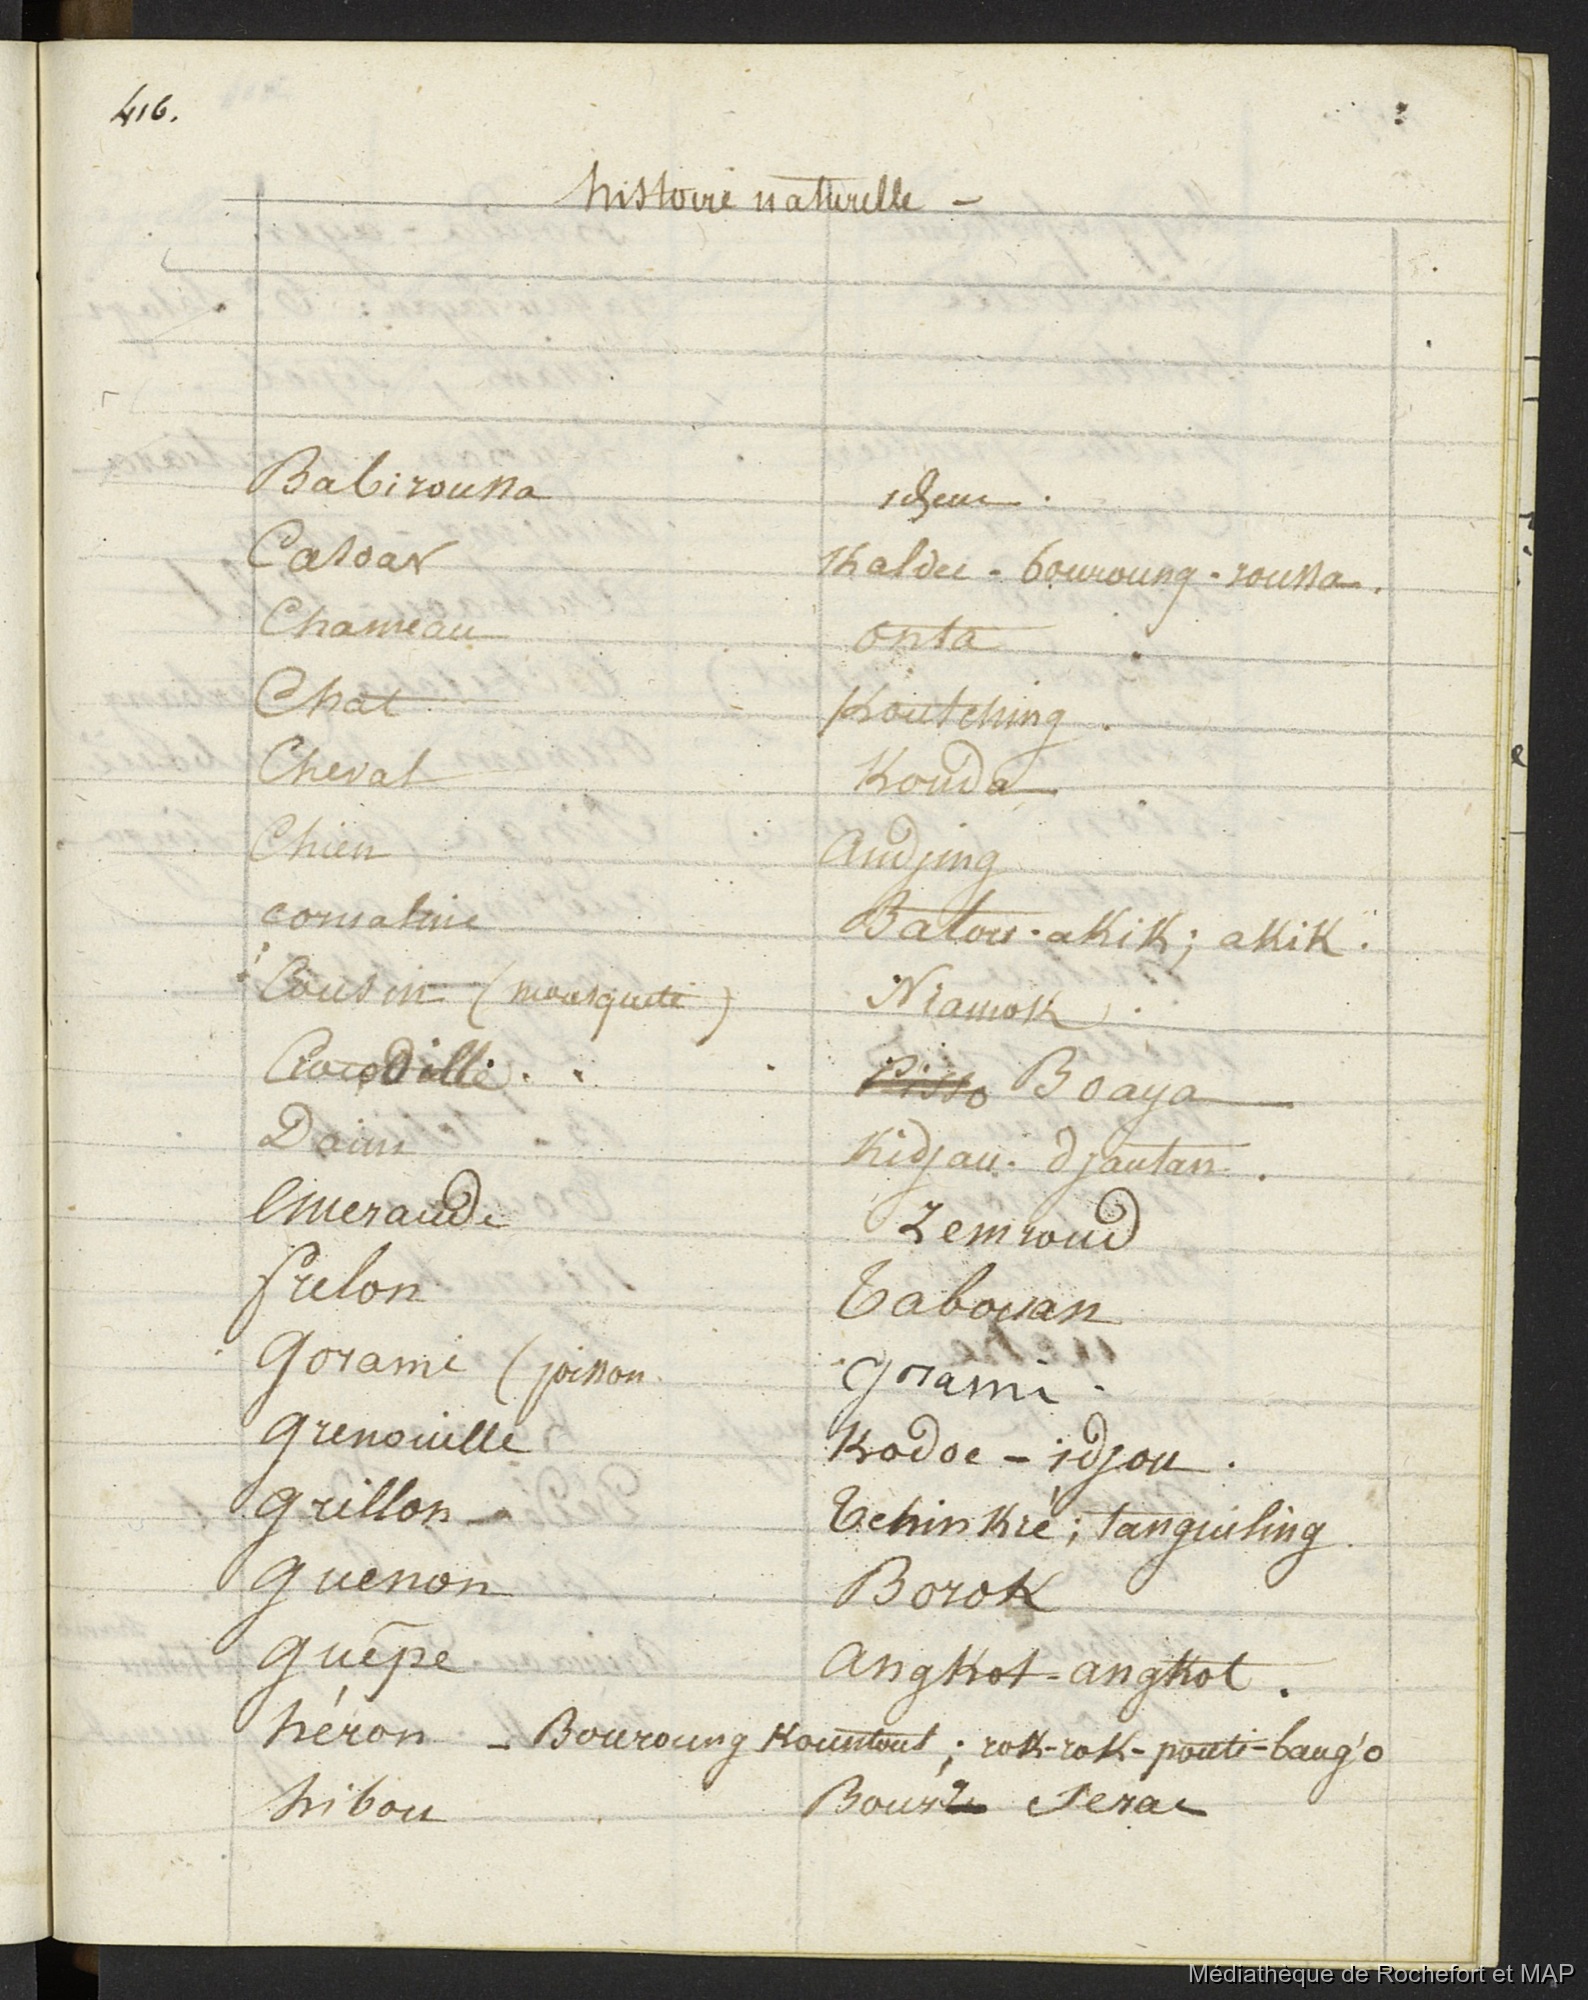 416.
histoire naturelle -
Babiroussa idem.
Casoar Kaldei - bouroung - roussa.
Chameau onta
Chat Koutching.
Cheval Kouda
Chien andjing
cornaline Batou - akik; akik.
Cousin (mousquite) Niamok.
Crocodille. Pisso Boaya
Daim Kidjau - djautan.
Emeraude Zemroud
frelon Tabouan
Gorami (poisson. gorami.
Grenouille Kodoe - idjou.
Grillon Tchinkré; tanguiling.
Guenon Borok
Guêpe angkot - angkot.
héron - Bouroung Kountout; rok-rok-pouti-bang'o
hibou Serae
Médiathèque de Rochefort et MAP